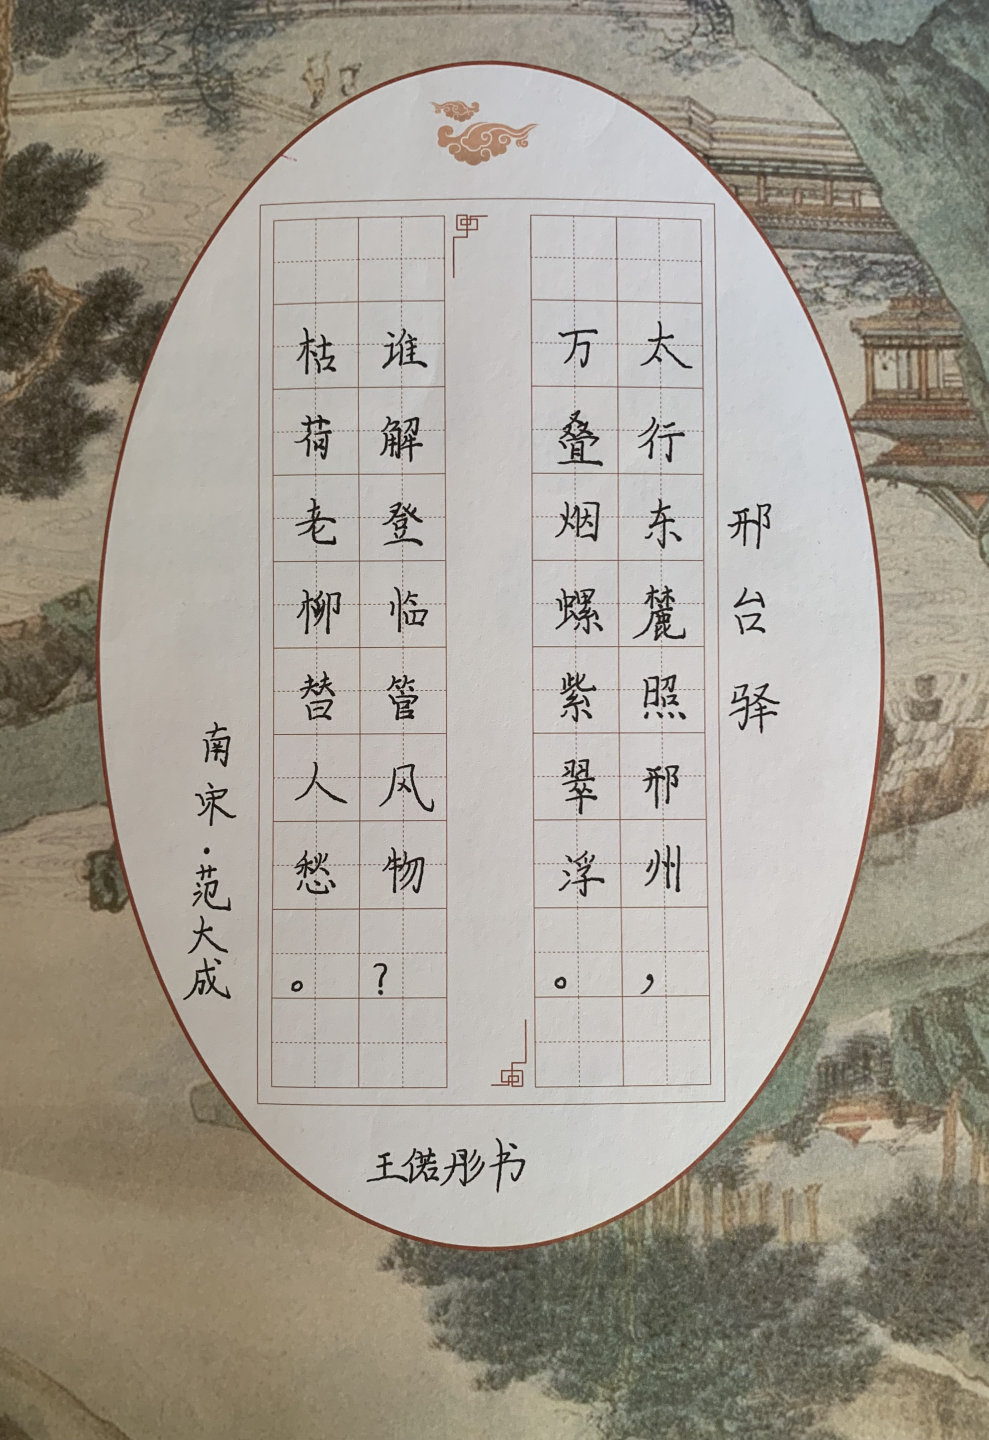 邢台驿
太行东麓照邢州，
万叠烟螺紫翠浮。
谁解登临管风物？
枯荷老柳替人愁。
南宋·范大成
王偌彤书